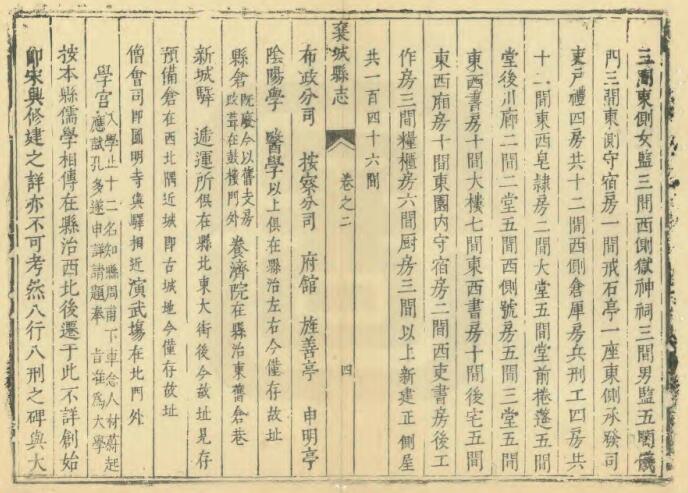 三間東側女監三間西側獄神祠三間男監五間儀
門三間東側守宿房一間戒石亭一座東側承發司
吏戶禮四房共十二間西側倉庫房兵刑工四房共
十二間東西皂隸房二間大堂五間堂前捲蓬五間
堂後川廊二間二堂五間西側號房五間三堂五間
東西書房十間大樓七間東西書房十間後宅五間
東西廂房十間東園內守宿房二間西吏書房後工
作房三間糧櫃房六間厨房三間以上新建正側屋
共一百四十六間
襄城縣志 卷之二 四
布政分司 按察分司 府館 旌善亭 申明亭
陰陽學 醫學以上俱在縣治左右今僅存故址
縣倉既廢今以舊支房改葺在鼓樓門外 養濟院在縣治東舊倉巷
新城驛 遞運所俱在縣北東大街後今故址見存
預備倉在西北隅近城即古城地今僅存故址
僧會司即圓明寺與驛相近演武場在北門外
學宮入學止十二名知縣周甫下車念人材蔚起應試孔多遂申詳請題奉 旨准為大學
按本縣儒學相傳在縣治西北後遷于此不詳創始
即宋興修建之詳亦不可考然八行八刑之碑與大